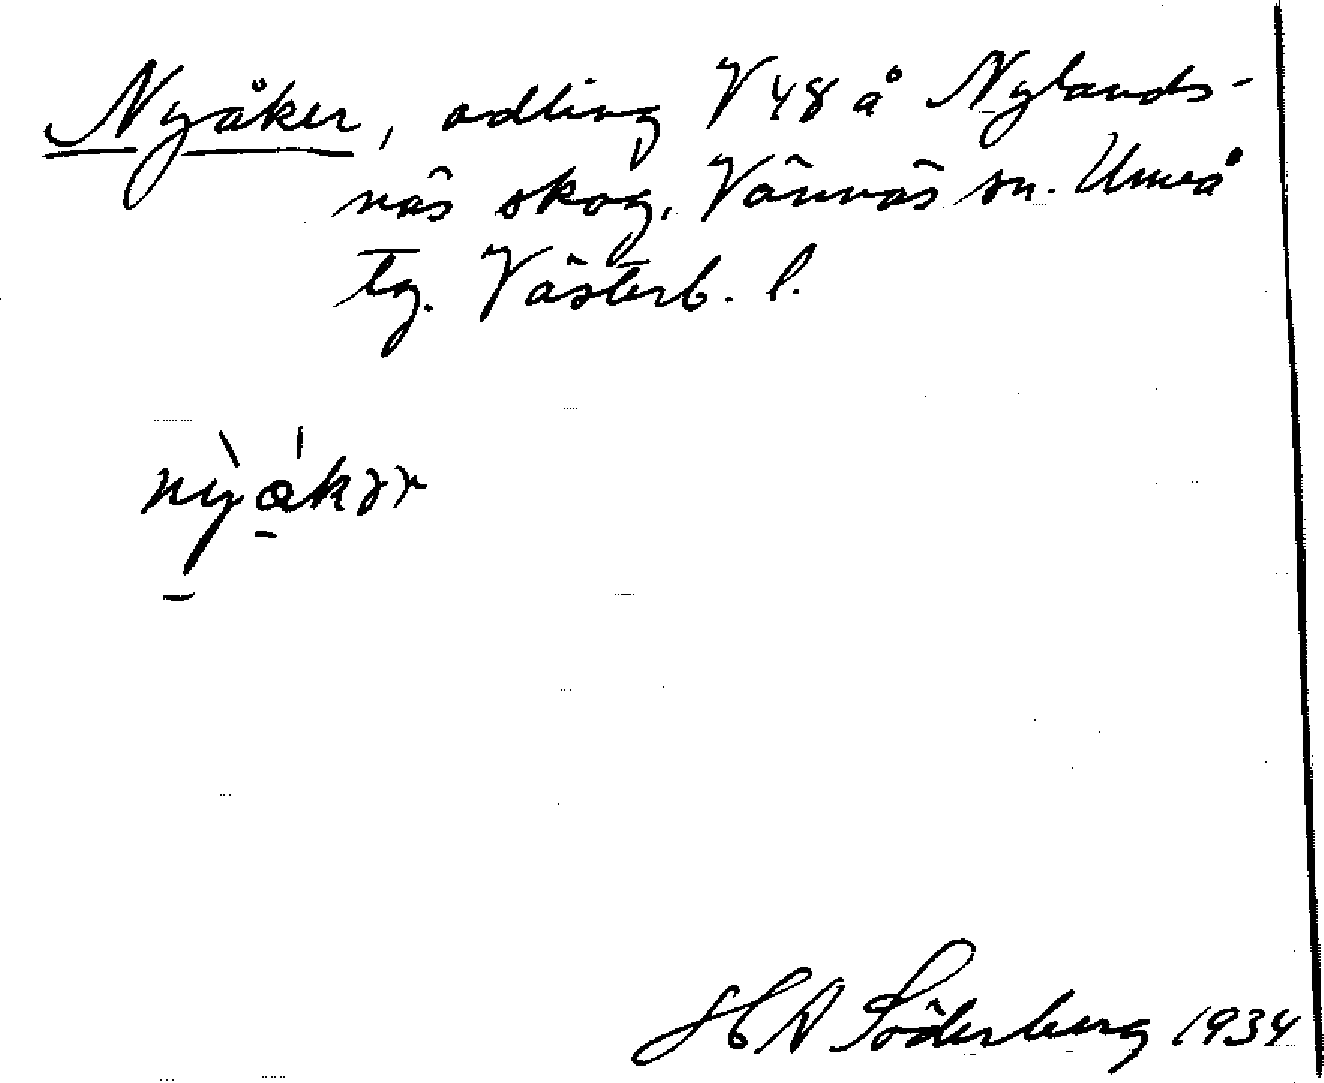 Nyåker, odling V 48 å Nylands-
näs skog, Vännäs sn. Umeå
tg. Västerb. l.
nỳákər
H A Söderberg 1934